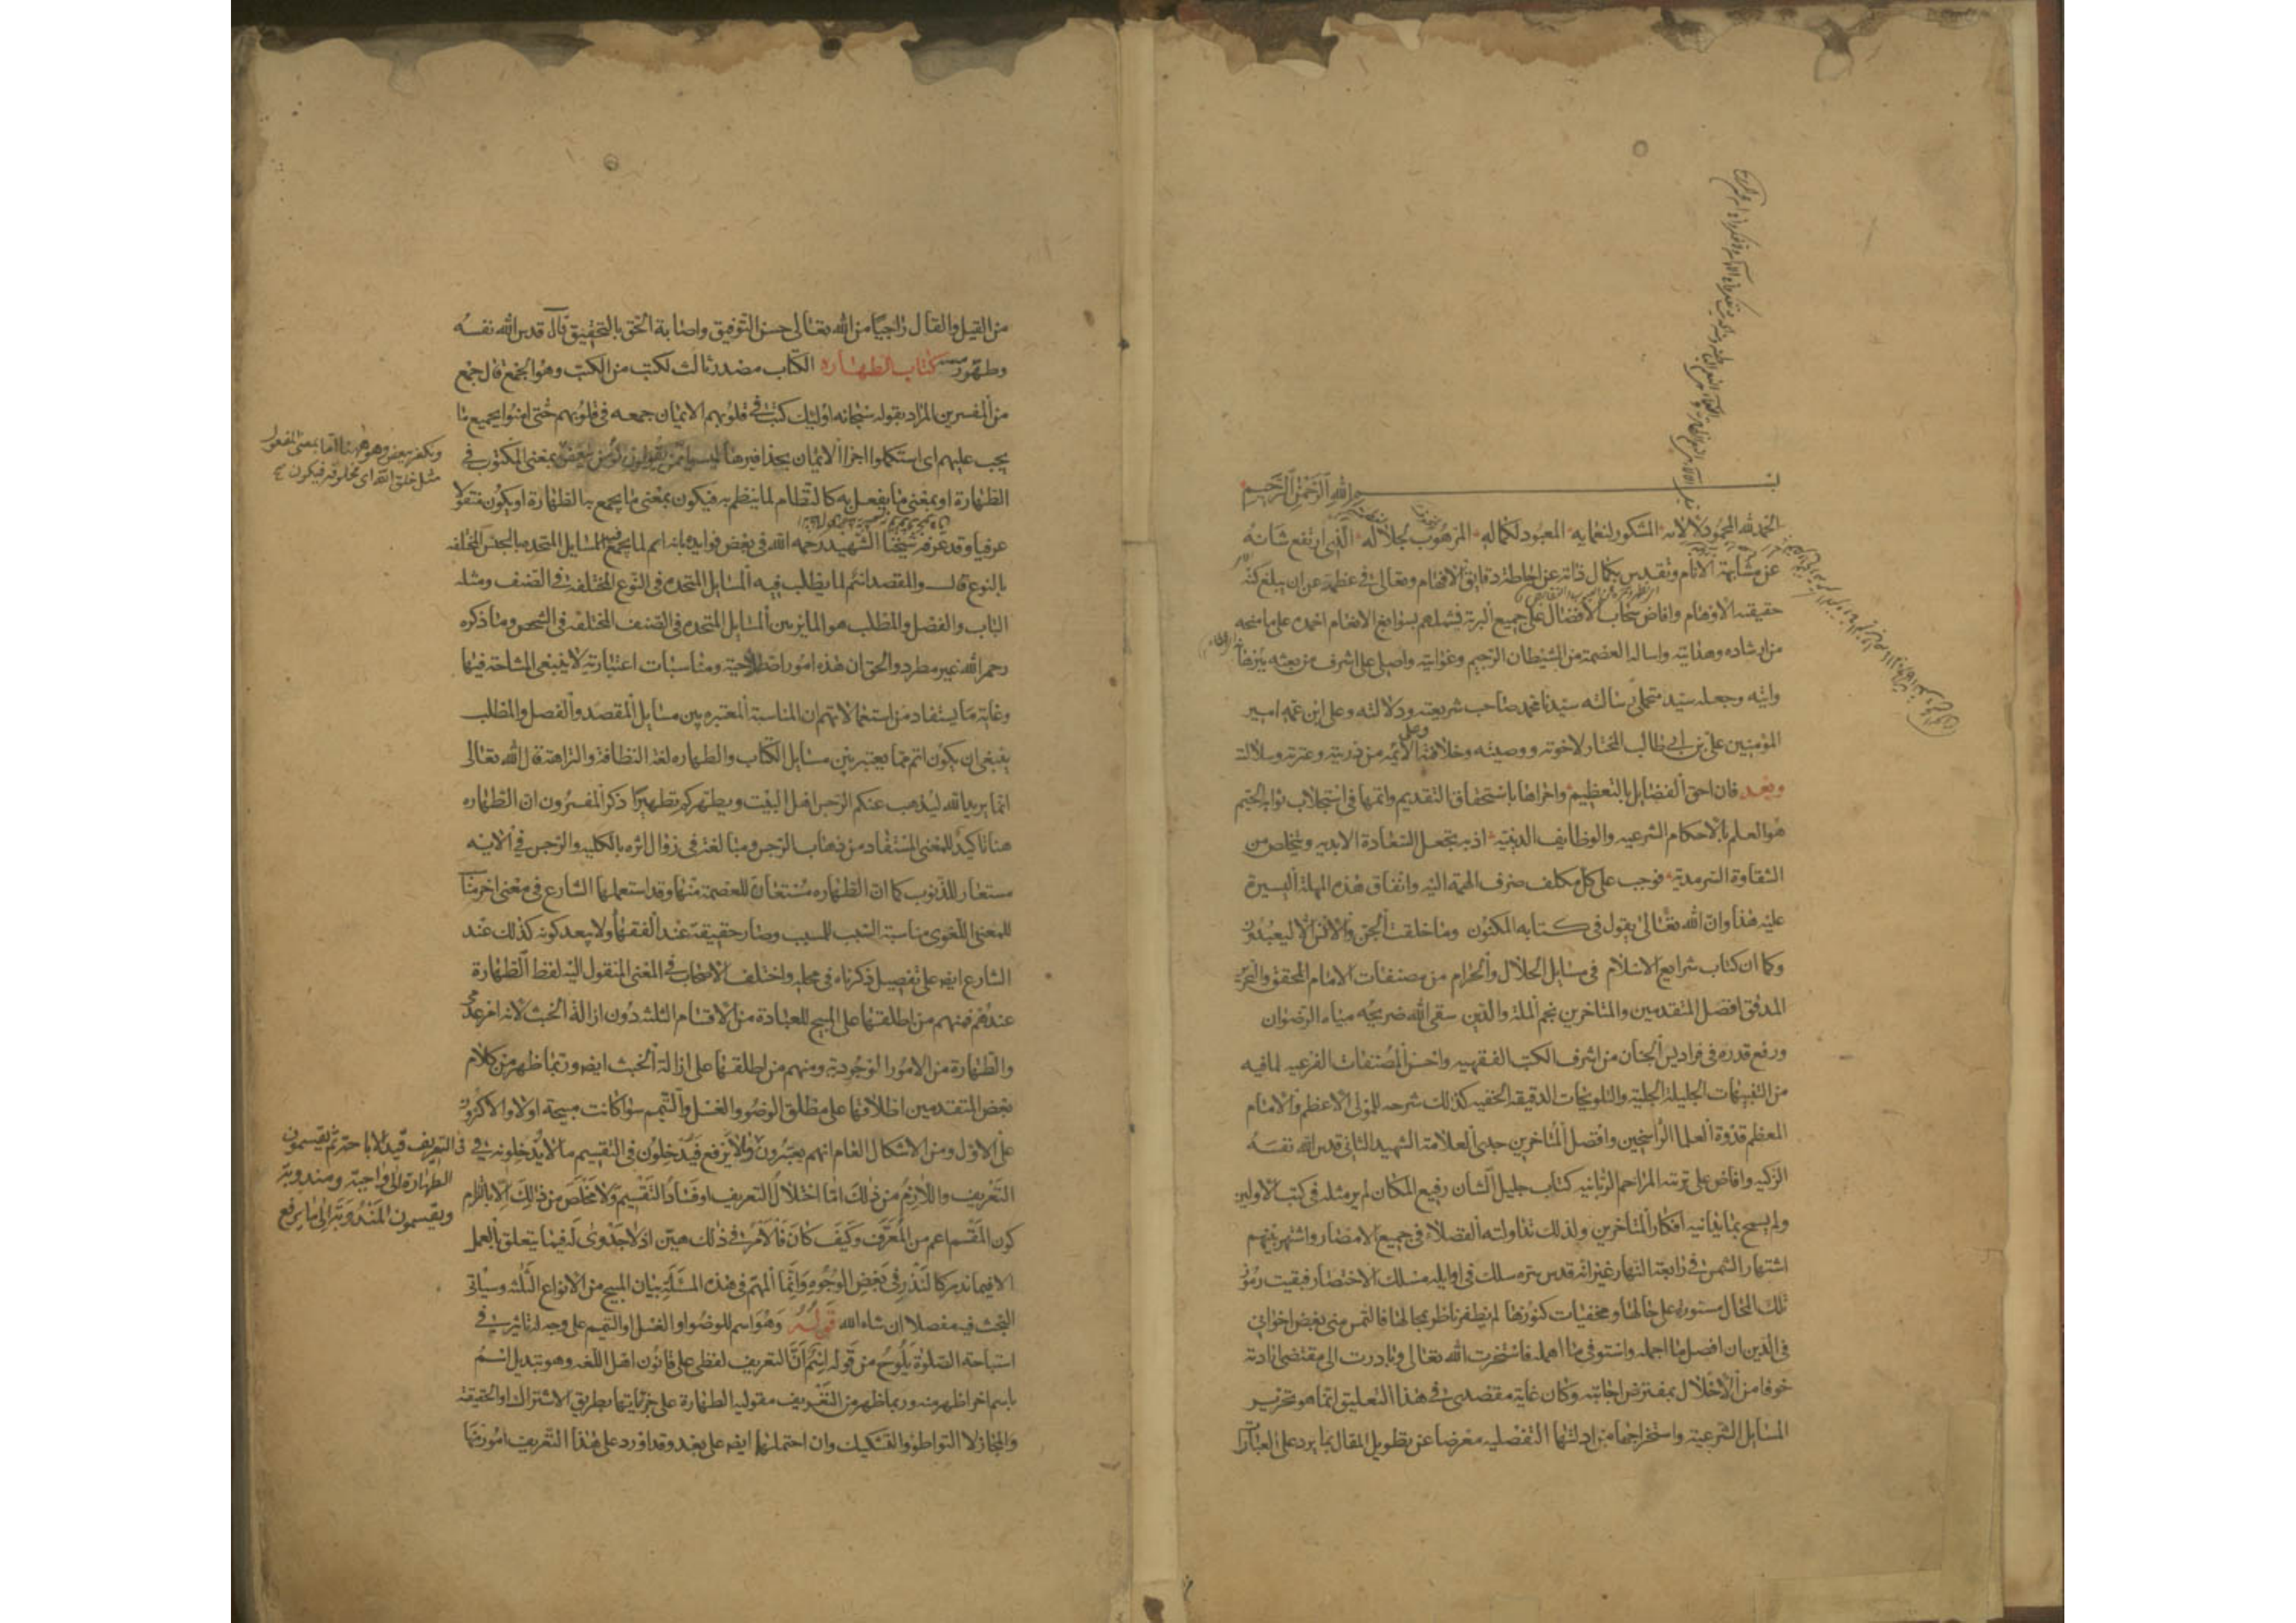 بسم الله الرحمن الرحيم
الحمد لله المحمود لآلائه المشكور لنعمائه المعبود لكماله المرهوب لجلاله الذي ارتفع شانه
عن مشابهة الانام وتقدس بكمال ذاته عن احاطة دقايق الافهام وتعالى في عظمته عن ان يبلغ كنه
حقيقته الاوهام وافاض سحاب الافضال على جميع البرية فشملهم بسوابغ الانعام احمده على ما منحه
من ارشاده وهدايته واساله العصمة من الشيطان الرجيم وغوايته واصلي على اشرف من بعثه
وجعله سيد متحملي رسالته سيدنا محمد صاحب شريعته ودلالته وعلى ابن عمه امير
المؤمنين علي بن ابي طالب المختار لاخوته ووصيته وخلافته وعلى الائمة من ذريته وعترته وسلالته
وبعد فان احق الفضايل بالتعظيم واحراها باستحقاق التقديم واتمها في استجلاب ثوابه الجسيم
هو العلم بالاحكام الشرعيه والوظايف الدينية اذ به تحصل السعادة الابديه ويتخلص من
الشقاوة السرمدية فوجب على كل مكلف صرف الهمة اليه وانفاق هذه المهلة اليسيرة
عليه هذا وان الله تعالى يقول في كتابه المكنون وما خلقت الجن والانس الا ليعبدون
وكما ان كتاب شرايع الاسلام في مسايل الحلال والحرام من مصنفات الامام المحقق والتحرير
المدقق افضل المتقدمين والمتاخرين نجم الملة والدين سقى الله ضريحه مياه الرضوان
ورفع قدره في فراديس الجنان من اشرف الكتب الفقهيه واحسن المصنفات الفرعيه لما فيه
من التنبيهات الجليلة الجلية والتلويحات الدقيقة الخفيه كذلك شرحه للمولى الاعظم والامام
المعظم قدوة العلما الراسخين وافضل المتاخرين جدي العلامة الشهيد الثاني قدس الله نفسه
الزكيه وافاض على تربته المراحم الربانيه كتاب جليل الشان رفيع المكان لم ير مثله في كتب الاولين
ولم يسمح بما يدانيه افكار المتاخرين ولذلك تداولته الفضلاء في جميع الامصار واشتهر بينهم
اشتهار الشمس في رابعة النهار غير انه قدس سره سلك في اوايله مسلك الاختصار فبقيت رموز
تلك المحال مستوره على حالها ومخفيات كنوزها لم يظفر ناظر بمجالها فالتمس مني بعض اخواني
في الدين ان افصل ما اجمله واستوفي ما اهمله فاستخرت الله تعالى وبادرت الى مقتضى ارادته
خوفا من الاخلال بمفترض اجابته وكان غاية مقصدي في هذا التعليق انما هو تحرير
المسايل الشرعية واستخراجها من ادلتها التفصليه معرضا عن تطويل المقال بما يرد على العبارات
من القيل والقال راجيا من الله تعالى حسن التوفيق واصابة الحق بالتحقيق قال قدس الله نفسه
وطهر رمسه كتاب الطهاره الكتاب مصدر ثالث لكتب من الكتب وهو الجمع قال جمع
من المفسرين المراد بقوله سبحانه اولئك كتب في قلوبهم الايمان جمعه في قلوبهم حتى امنوا بجميع ما
يجب عليهم اي استكملوا اجزا الايمان بحذافيرها ليسوا ممن يقولون نؤمن ببعض بمعنى المكتوب في
ونكفر ببعض وهو ههنا اما بمعنى المفعول
مثل خلق الله اي مخلوقه فيكون
الطهارة او بمعنى ما يفعل به كالنظام لما ينظم به فيكون بمعنى ما يجمع به الطهارة او يكون منقولا
عرفيا وقد عرفه شيخنا الشهيد رحمه الله في بعض فوايده بانه اسم لما يجمع المسايل المتحده بالجنس المختلفه
بالنوع قال والمقصد اسم لما يطلب فيه المسايل المتحده في النوع المختلفة في الصنف ومثله
الباب والفصل والمطلب هو المايز بين المسايل المتحده في الصنف المختلفة في الشخص وما ذكره
رحمه الله غير مطرد والحق ان هذه امور اصطلاحية ومناسبات اعتبارية لا ينبغي المشاحة فيها
وغاية ما يستفاد من استعمالاتهم ان المناسبة المعتبره بين مسايل المقصد والفصل والمطلب
ينبغي ان يكون اتم مما يعتبر بين مسايل الكتاب والطهاره لغة النظافة والنزاهة قال الله تعالى
انما يريد الله ليذهب عنكم الرجس اهل البيت ويطهركم تطهيرا ذكر المفسرون ان الطهاره
هنا تاكيد للمعنى المستفاد من ذهاب الرجس ومبالغة في زوال اثره بالكليه والرجس في الايه
مستعار للذنوب كما ان الطهاره مستعارة للعصمة منها وقد استعملها الشارع في معنى اخر مناسب
للمعنى اللغوي مناسبة السبب للمسبب وصار حقيقة عند الفقها ولا يبعد كونه كذلك عند
الشارع ايضا على تفصيل ذكرناه في محله واختلف الاصحاب في المعنى المنقول اليه لفظ الطهارة
عندهم فمنهم من اطلقها على المبيح للعبادة من الاقسام الثلثه دون ازالة الخبث لانه امر عدمي
والطهارة من الامور الوجودية ومنهم من اطلقها على ازالة الخبث ايضا وربما ظهر من كلام
بعض المتقدمين اطلاقها على مطلق الوضوء والغسل والتيمم سوا كانت مبيحة او لا والاكثرون
على الاول ومن الاشكال العام انهم يعتبرون في التعريف قيد الاباحة ثم يقسمون
الطهارة الى واجبة ومندوبة
ويقسمون المندوبة الى ما يرفع
ولا يرفع فيدخلون في التقسيم ما لا يدخلونه في
التعريف واللازم من ذلك اما اختلال التعريف او فساد التقسيم ولا مخلص من ذلك الا بالتزام
كون المقسم اعم من المعرف وكيف كان فالامر في ذلك هين اذ لا جدوى له فيما يتعلق بالعمل
الا فيما ندر كالنذر في بعض الوجوه وانما المهم في هذه المسئلة بيان المبيح من الانواع الثلثه وسياتي
البحث فيه مفصلا ان شاء الله قوله وهو اسم للوضوء او الغسل او التيمم على وجه له تاثير في
استباحة الصلوة يلوح من قوله اسم ان التعريف لفظي على قانون اهل اللغه وهو تبديل اسم
باسم اخر اظهر منه وربما ظهر من التعريف مقولية الطهارة على جزئياتها بطريق الاشتراك او الحقيقة
والمجاز لا التواطؤ والتشكيك وان احتملها ايضا على بعد وقد اورد على هذا التعريف امور منها